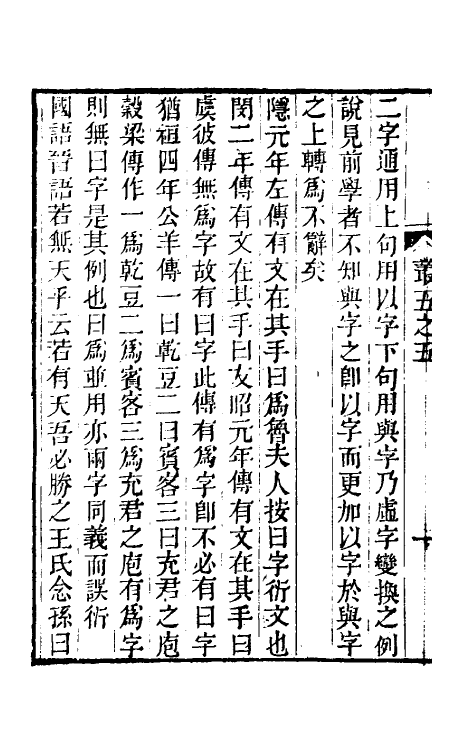 叢五之五
二字通用上句用以字下句用與字乃虛字變換之例
說見前學者不知與字之卽以字而更加以字於與字
之上轉爲不辭矣
隱元年左傳有文在其手曰爲魯夫人按曰字衍文也
閔二年傳有文在其手曰友昭元年傳有文在其手曰
虞彼傳無爲字故有曰字此傳有爲字卽不必有曰字
猶桓四年公羊傳一曰乾豆二曰賓客三曰充君之庖
穀梁傳作一爲乾豆二爲賓客三爲充君之庖有爲字
則無曰字是其例也曰爲並用亦兩字同義而誤衍
國語晉語若無天乎云若有天吾必勝之王氏念孫曰